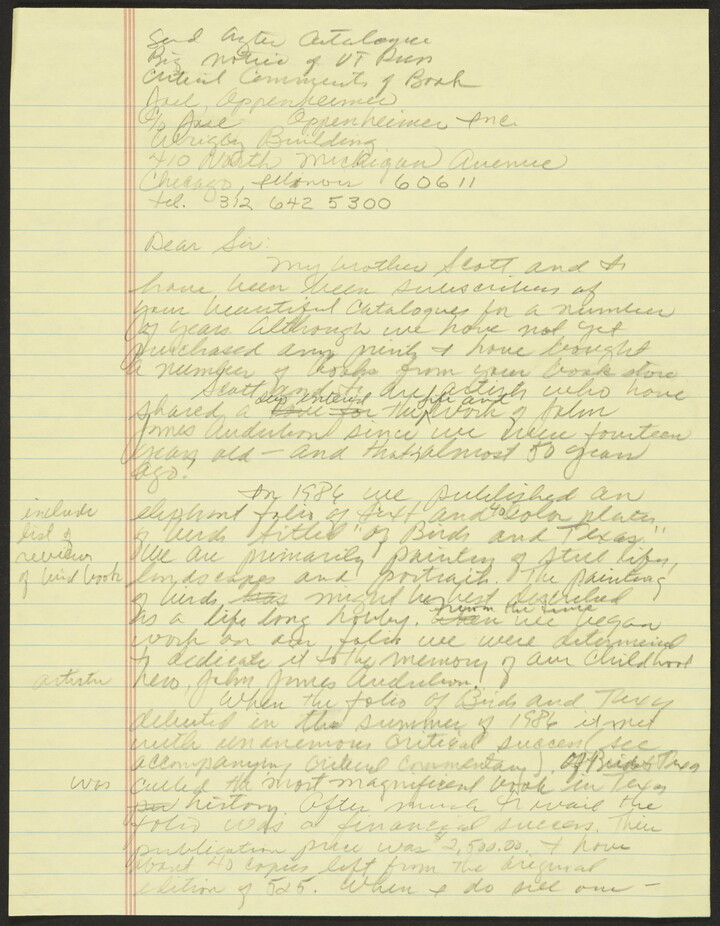 Send after Catalogue
Big Notice of UT Press
Critical Comments of Book
Joel, Oppenheimer
c/o Joel Oppenheimer Inc.
Wrigley Building
410 North Michigan Avenue
Chicago, Illinois 60611
tel. 312 642 5300
Dear Sir:
My brother Scott and I
have been been subscribers of
your beautiful catalogues for a number
of years. Although we have not yet
purchased any prints I have bought
a number of books from your book store
Scott and I are artists who have
shared a deep interest the life and work of John
James Audubon since we were fourteen
years old – and that's almost 50 years
ago.
In 1986 we published an
include
elephant folio of text and 40 color plates
list of
of birds titled "Of Birds and Texas."
reviews
We are primarily painters of still lifes,
of bird book
landscapes and portraits. The painting
of birds, might be best described
as a life long hobby. From the time we began
work on our folio we were determined
to dedicate it to the memory of our childhood
artistic
hero, John James Audubon.
When the folio Of Birds and Texas
debuted in the summer of 1986 it met
with unanemous critical success (see
accompanying critical commentary). Of Birds & Texas
was
called the most magnificent book in Texas
history. After much travail the
folio was a financial success. Their
publication price was $2,500.00. I have
about 40 copies left from the original
edition of 525. When I do sell one –